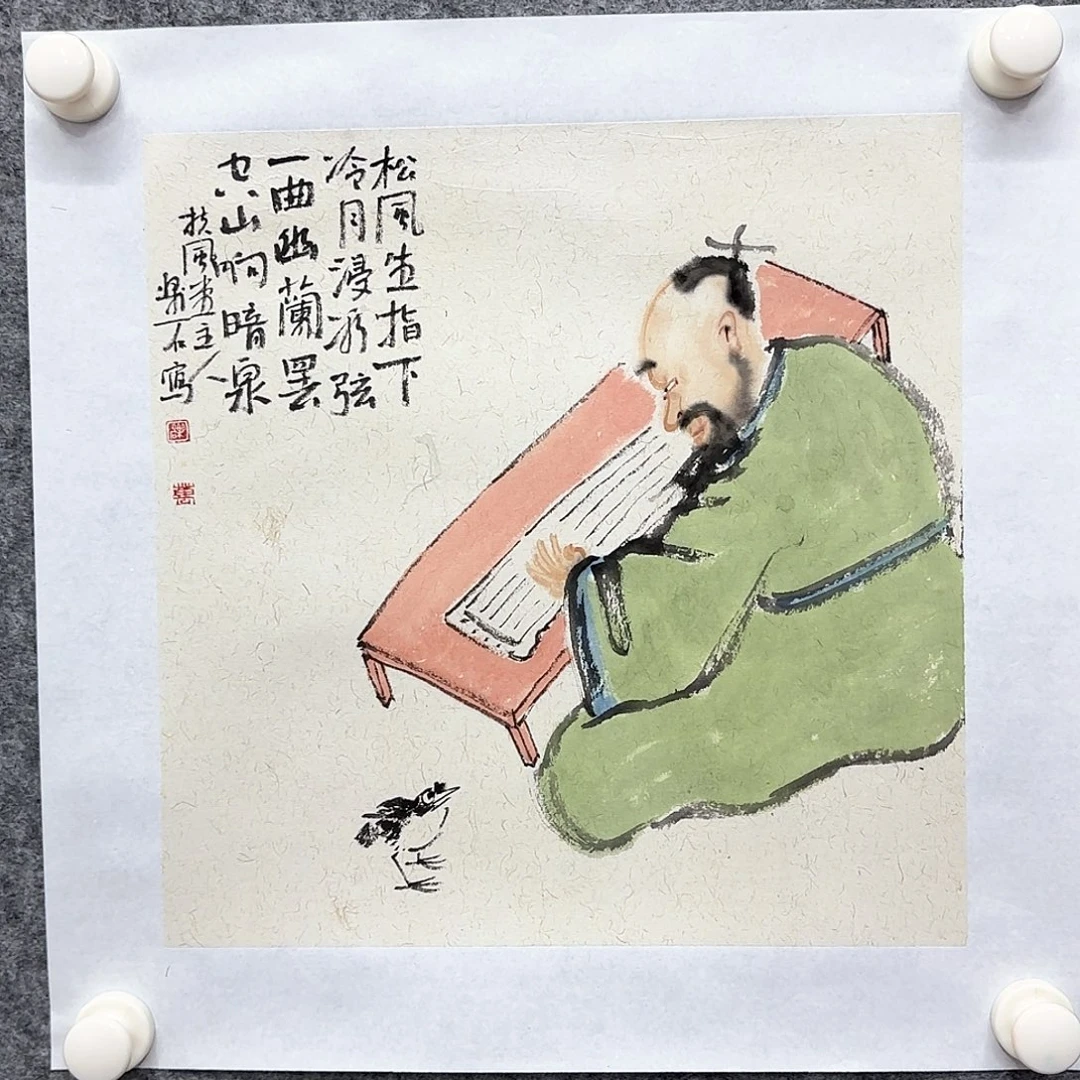 松風生指下
冷月浸冰弦
一曲幽蘭罢
空山响暗泉
扶風堂主人
樂石寫